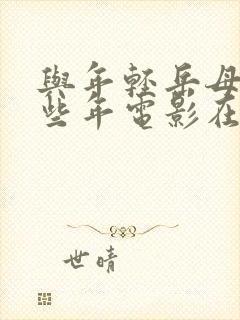 與年輕岳母
些年電影在
世晴